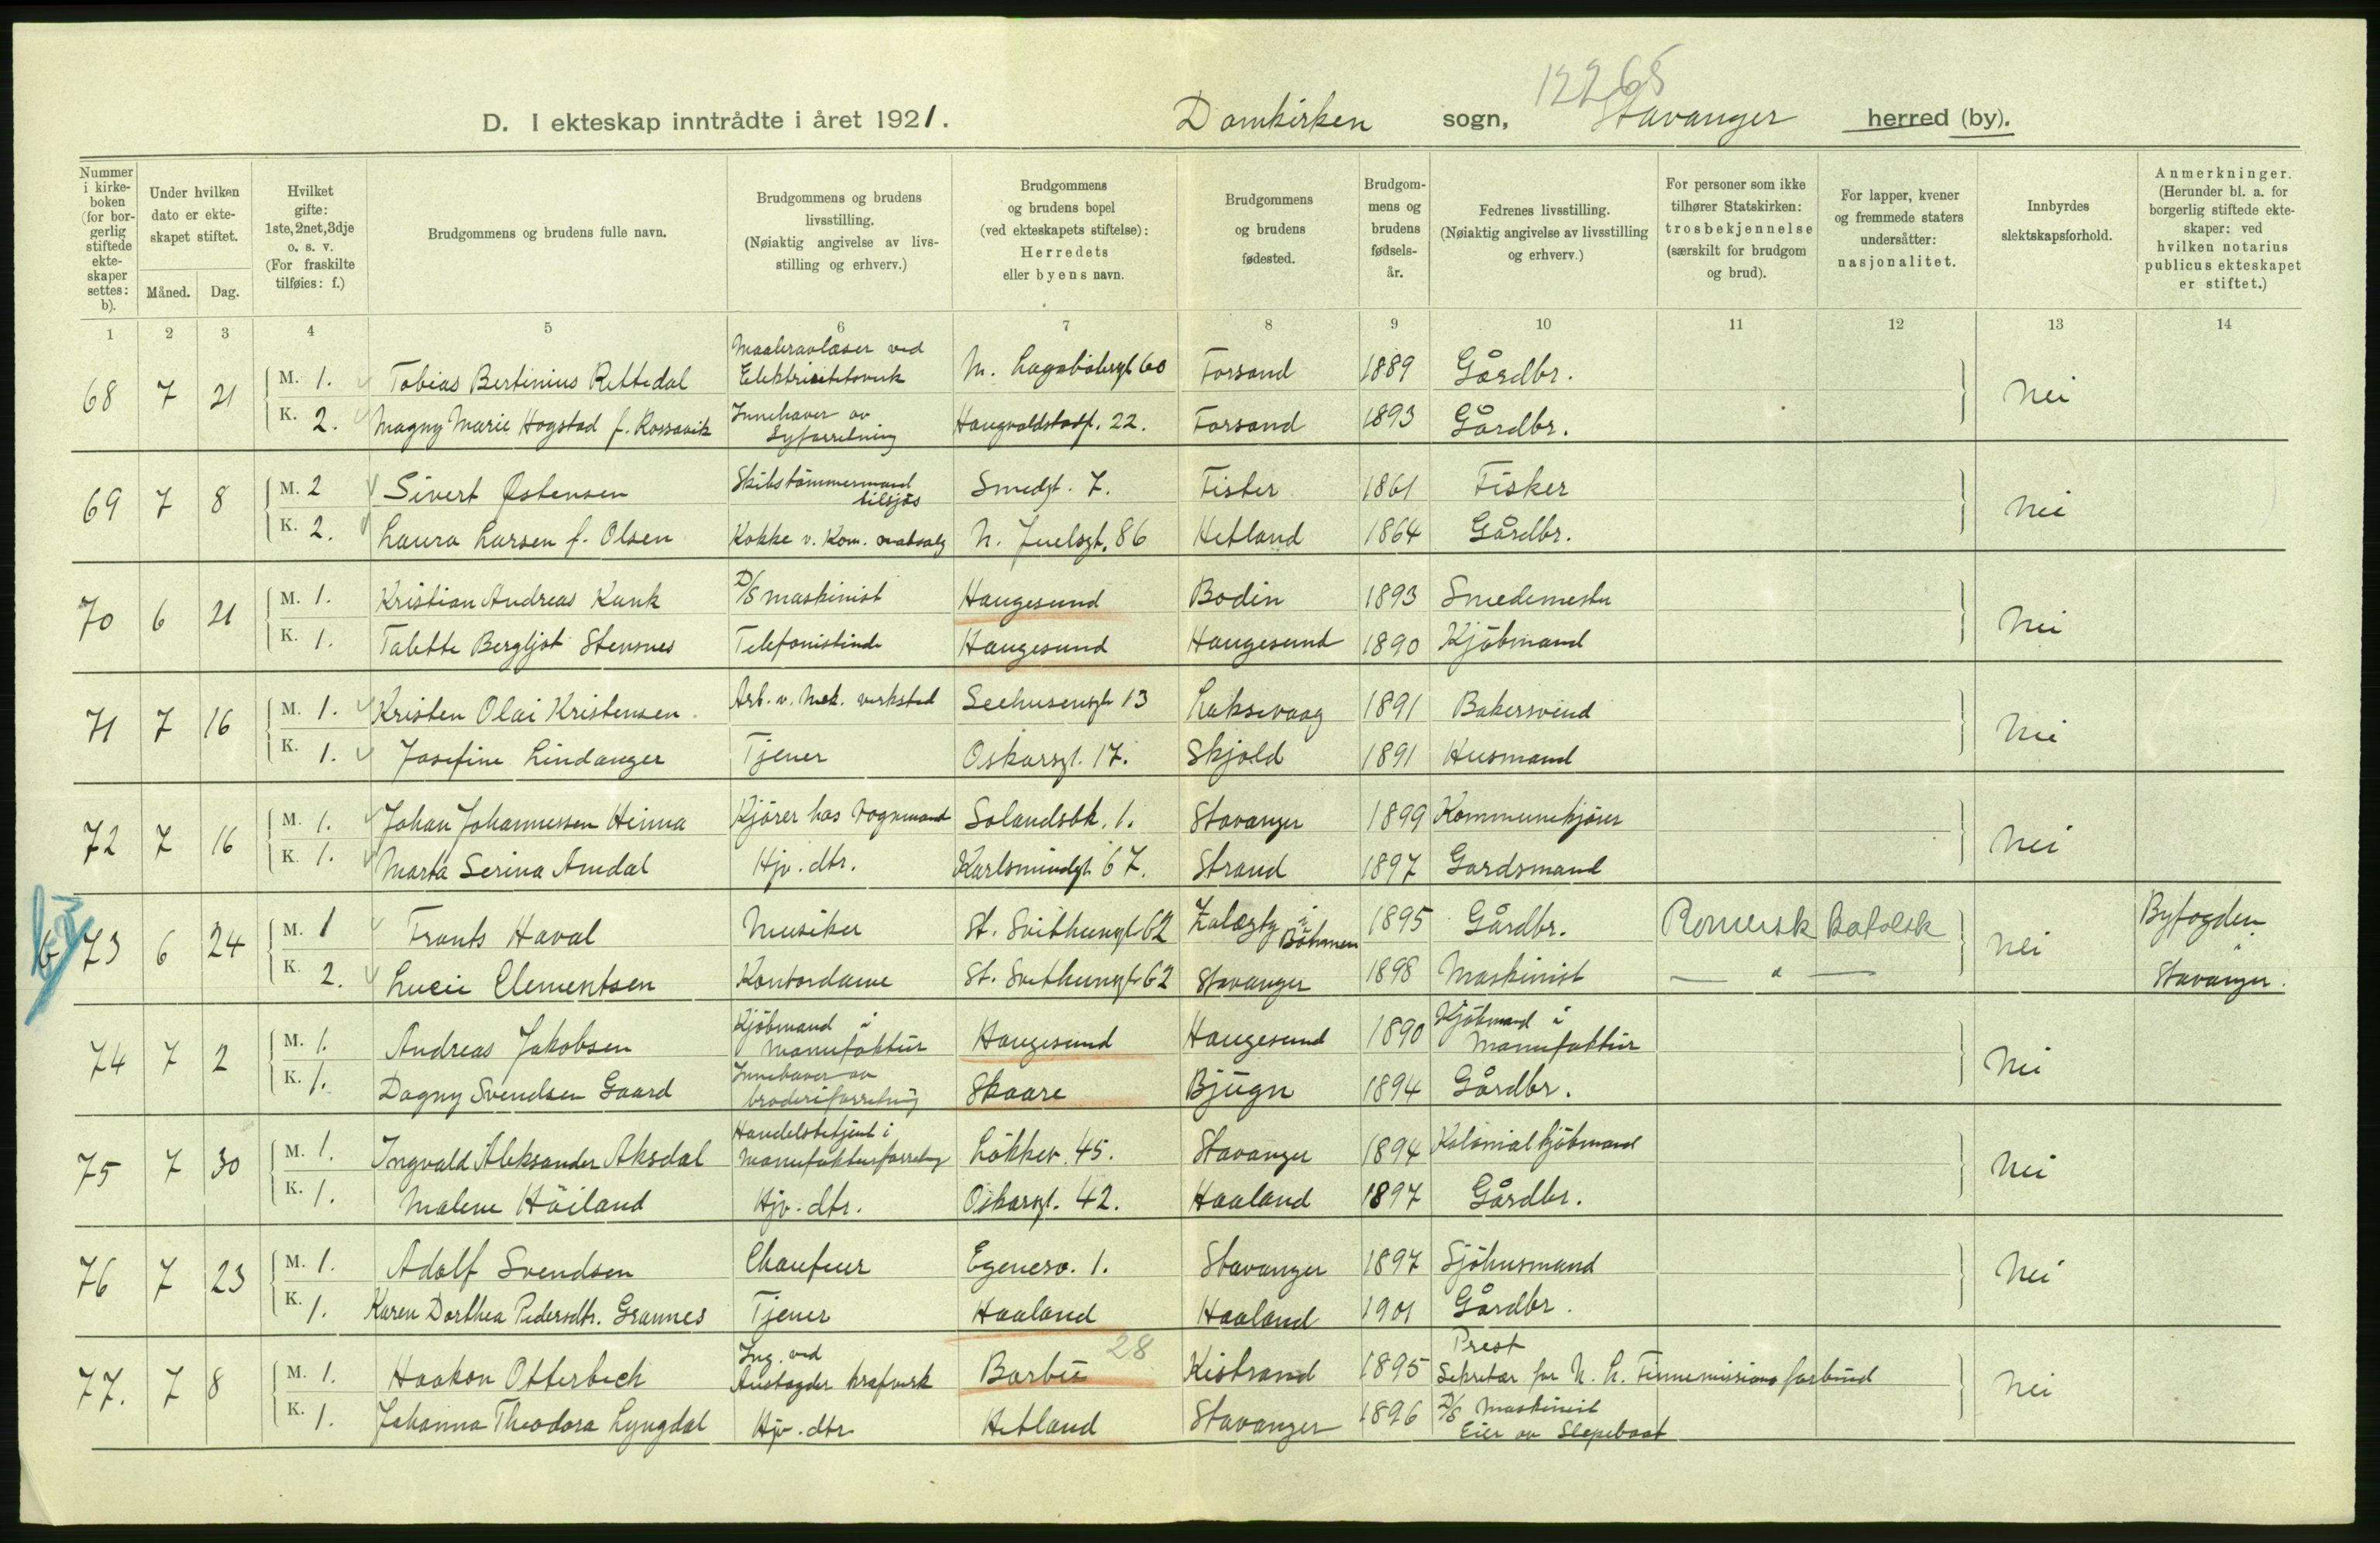 12265
D. I ekteskap inntrådte i året 1921. Domkirken sogn, Stavanger herred (by).
Nummer i kirke-boken (for bor-gerlig stiftede ekte-skaper settes: b).
Under hvilken dato er ekte-skapet stiftet.
Måned. Dag.
Hvilket gifte: 1ste, 2net, 3dje o. s. v. (For fraskilte tilføies: f.)
Brudgommens og brudens fulle navn.
Brudgommens og brudens livsstilling. (Nøiaktig angivelse av livs-stilling og erhverv.)
Brudgommens og brudens bopel (ved ekteskapets stiftelse): Herredets eller byens navn.
Brudgommens og brudens fødested.
Brudgom-mens og brudens fødsels-år.
Fedrenes livsstilling. (Nøiaktig angivelse av livsstilling og erhverv.)
For personer som ikke tilhører Statskirken: trosbekjennelse (særskilt for brudgom og brud).
For lapper, kvener og fremmede staters undersåtter: nasjonalitet.
Innbyrdes slektskapsforhold.
Anmerkninger. (Herunder bl. a. for borgerlig stiftede ekte-skaper: ved hvilken notarius publicus ekteskapet er stiftet.)
1 2 3 4 5 6 7 8 9 10 11 12 13 14
68 7 21 M. 1. Tobias Bertinius Rettedal Maaleravlæser ved Elektricitetsverk N. 60 Forsand 1889 Gårdbr. Nei
K. 2. Magny Marie Hogstad f. Rossavik Innehaver av Syforretning Haugvaldstadsg. 22. Forsand 1893 Gårdbr.
69 7 8 M. 2 Sivert Østensen Skibstømmermand tilsjøs Smedgt. 7. Fister 1861 Fisker Nei
K. 2. Laura Larsen f. Olsen Kokke v. Kom. matsalg N. Juelsgt. 86 Hetland 1864 Gårdbr.
70 6 21 M. 1. Kristian Andreas Kunk D/S maskinist Haugesund Bodin 1893 Smedemester Nei
K. 1. Talette Bergljot Stensnes Telefonistinde Haugesund Haugesund 1890 Kjøbmand
71 7 16 M. 1. Kristen Olai Kristensen Arb. v. Mek. verksted Seehusensgt 13 Laksevaag 1891 Bakersvend Nei
K. 1. Josefine Lindanger Tjener Oskarsgt. 17. Skjold 1891 Husmand
72 7 16 M. 1. Johan Johannessen Hinna Kjører hos Vognmand Solandsbk. 1. Stavanger 1899 Kommunekjører Nei
K. 1. Marta Serina Amdal Hjv. dtr. Karlsmindegt 67. Strand 1897 Gardsmand
b 73 6 24 M. 1 Frants Haval Musiker St. Svithunsgt 62 i Bøhmen 1895 Gårdbr. Romersk katolsk Nei Byfogden i
K. 2. Lucie Clementsen Kontordame St. Svithunsgt 62 Stavanger 1898 Maskinist — " — Stavanger.
74 7 2 M. 1. Andreas Jakobsen Kjøbmand i Manufaktur Haugesund Haugesund 1890 Kjøbmand i Manufaktur Nei
K. 1. Dagny Svendsen Gaard Innehaver av broderiforretning Skaare Bjugn 1894 Gårdbr.
75 7 30 M. 1. Ingvald Aleksander Aksdal Handelsbetjent i Manufakturforretng Løkkev. 45. Stavanger 1894 Kolonialkjøbmand Nei
K. 1. Malene Høiland Hjv. dtr. Oskarsgt. 42. Haaland 1897 Gårdbr.
76 7 23 M. 1. Adolf Svendsen Chaufeur Egenesv. 1. Stavanger 1897 Sjøhusmand Nei
K. 1. Karen Dorthea Pedersdtr. Grannes Tjener Haaland Haaland 1901 Gårdbr.
77. 7 8 M. 1. Haakon Otterbech Ing. ved Austagder krafverk Barbu 28 Kistrand 1895 Prest Sekretær for N. L. Finnemisjons forbund Nei
K. 1. Johanna Theodora Lyngdal Hjv. dtr Hetland Stavanger 1896 D/S Maskinist Eier av Slepebaat